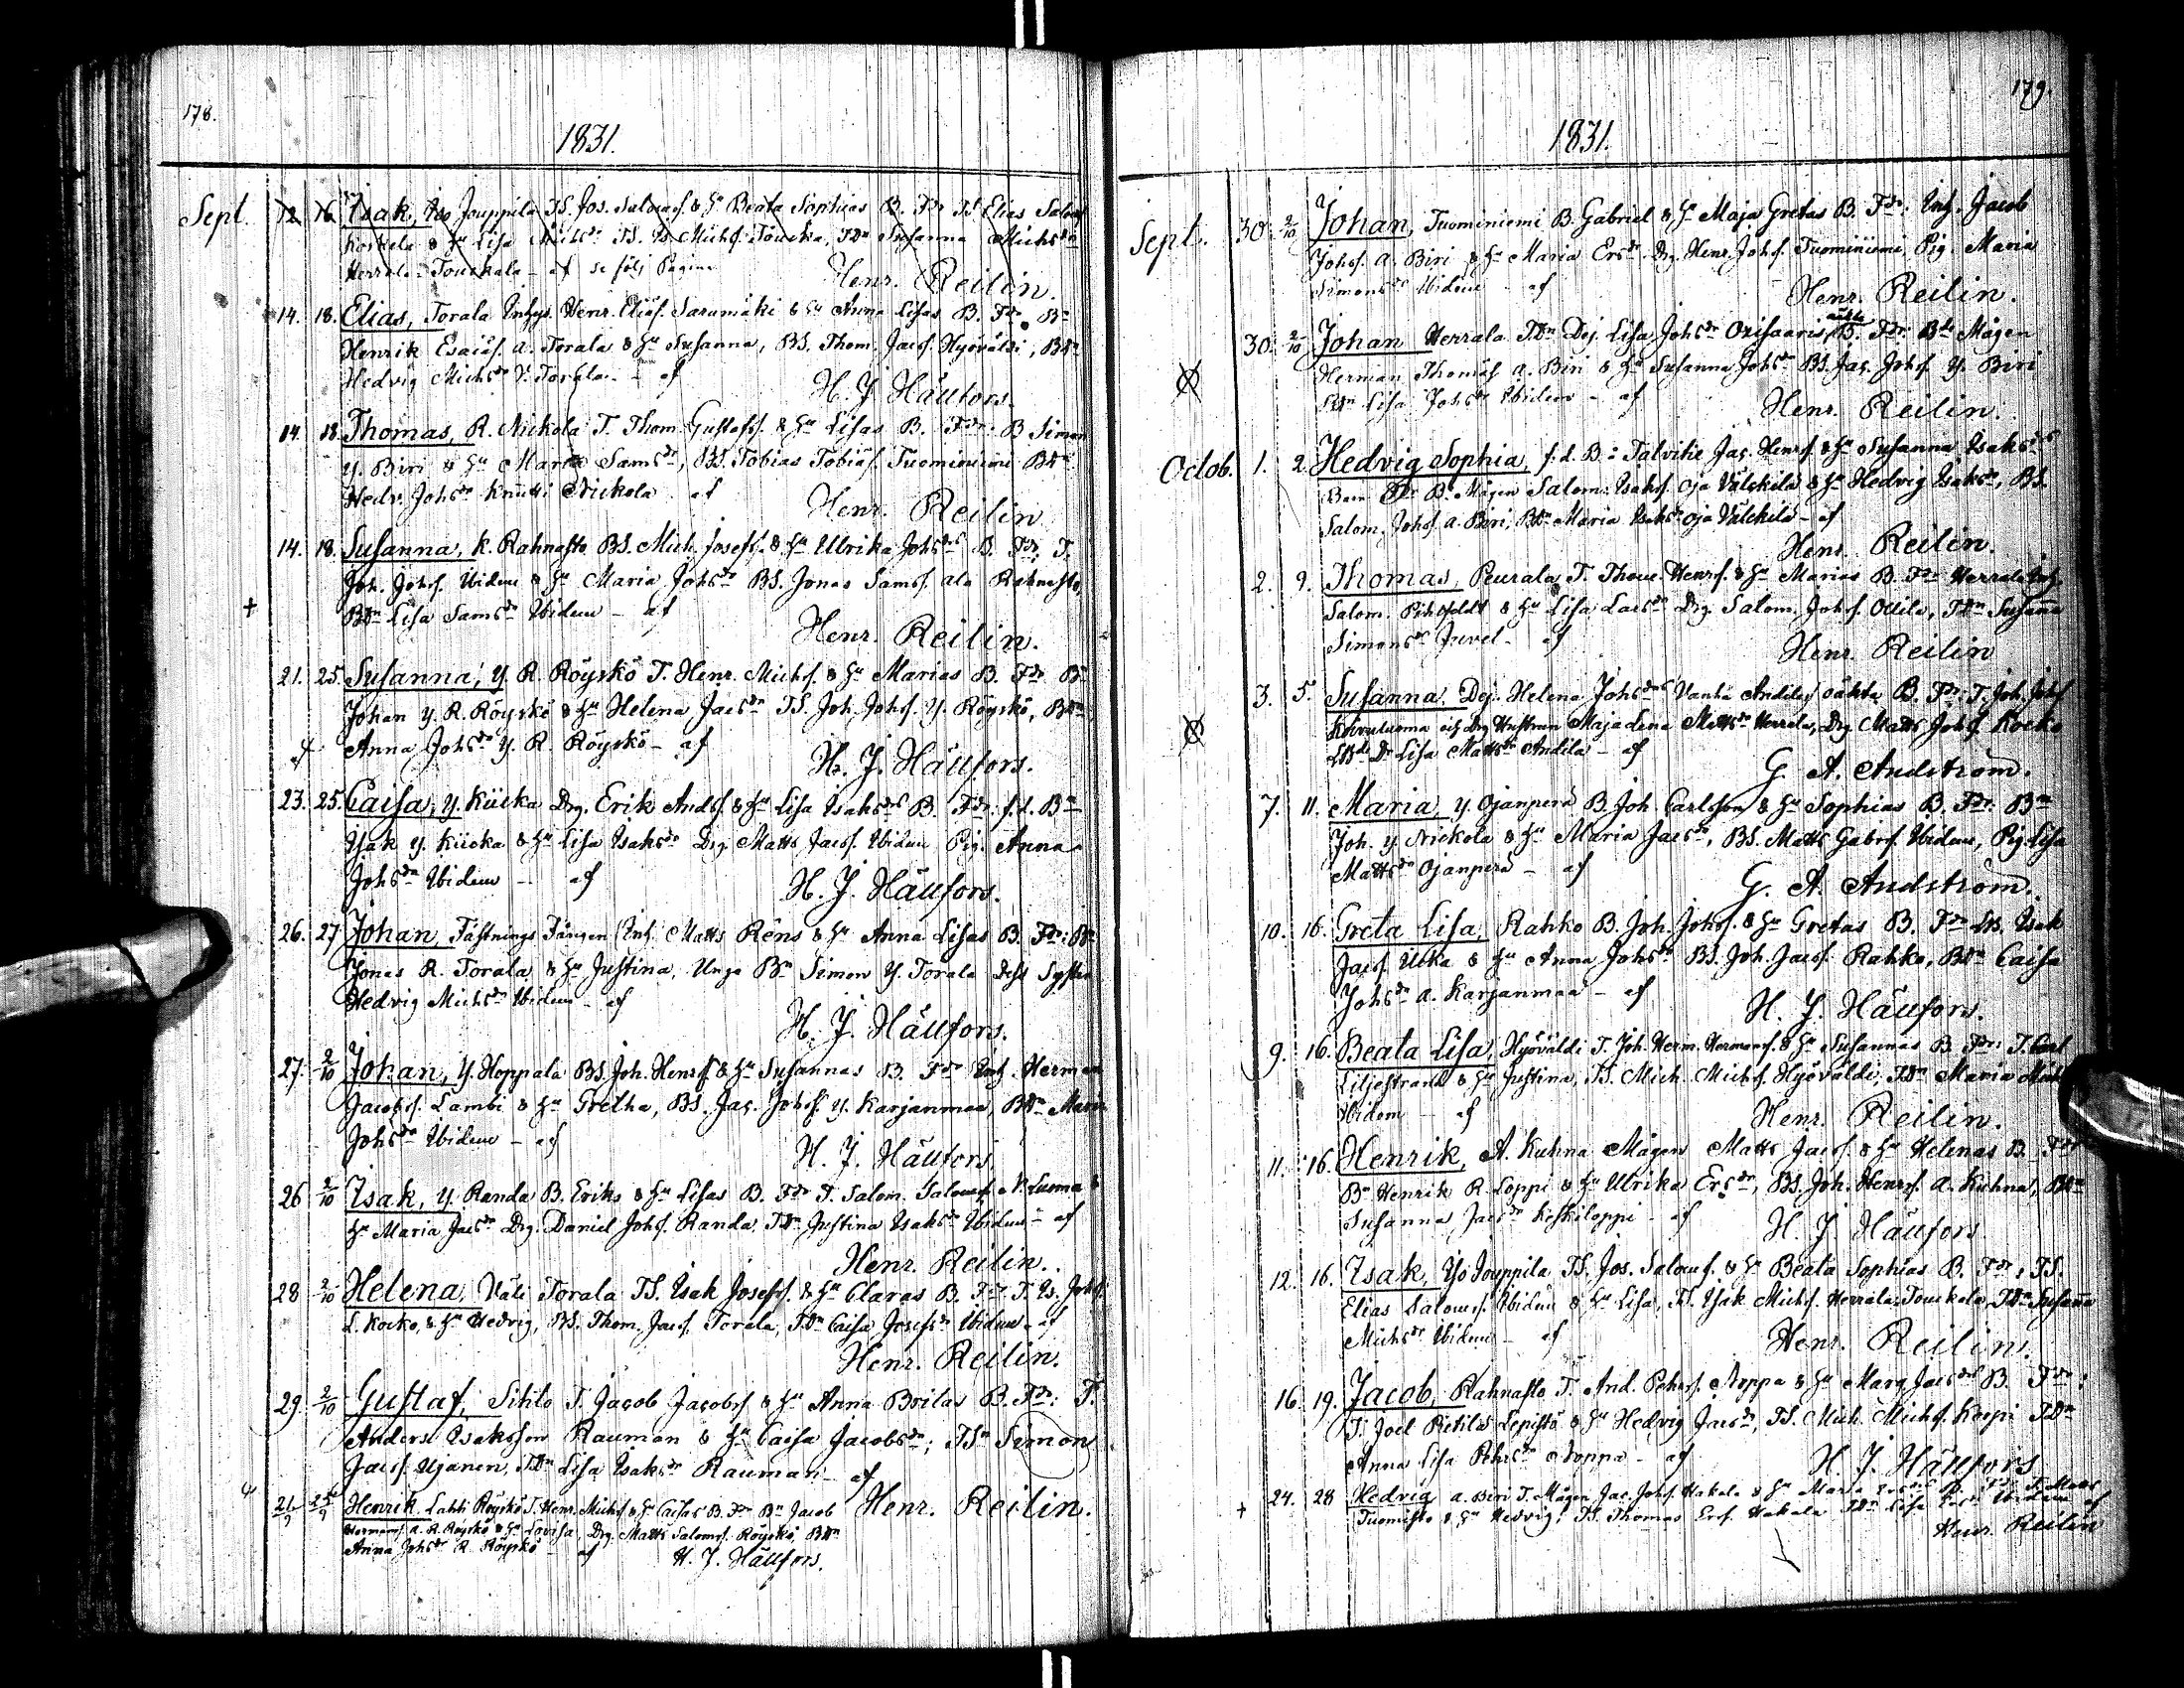 178.
1831.
Sept. 12. 16. Isak, Iso Jouppila TS. Jos. Salomsf. & Hu Beata Sophias B. Fdr TS Elias Salomsf
Korkela & Hu Lisa TS. Is. Michsf. Touckala, TDr Susanna Michsdr
Herrala Touckala - af se följ Pagina Henr. Reilin.
14. 18. Elias, Torala Inhys. Henr. Eliæs. Sarumäki & Hu Anna Lisas B. Fdr Bn
Henrik Esaiæs. a. Torala & Hu Susanna, BS. Thom. Jacsf. Hyöväldi, BDr
Hedvig Michsdr Y. Torala - af H. J. Hällfors.
14. 18. Thomas, R. Nickola T. Thom. Gustafsf. & Hu Lisas B. Fdr: B Simon
Y. Biri & Hu Maria Samsdr, BS. Tobias Tobiæs. Tuominiemi BDr
Hedv. Johsdr Knutti Nickola - af Henr. Reilin
14. 18. Susanna, K. Rahnasto BS. Mich. Josefsf. & Hu Ulrika Johsdrs B. Fdr: T.
Joh. Johsf. Ibidem & Hu Maria Johsdr BS. Jonas Samsf. ala Rahnasto,
+ BDr Lisa Samsdr Ibidem - af
Henr. Reilin.
21. 25. Susanna, Y. R. Röyskö T. Henr. Michsf. & Hu Marias B. Fdr Bn
Johan Y. R. Röyskö & Hu Helena Jacsdr TS. Joh. Johsf. Y. Röyskö, BDr
Anna Johsdr Y. R. Röyskö - af H. J. Hällfors.
23. 25. Caisa, Y. Kücka Drg. Erik Andsf. & Hu Lisa Isaksdrs B. Fdr: f.d. Bn
Isak Y. Kücka & Hu Lisa Isaksdr Drg Matts Jacsf. Ibidem Pig. Anna
Johsdr Ibidem - af H. J. Hällfors.
26. 27 Johan, Fästnings Fången Inh. Matts Rêns & Hu Anna Lisas B. Fdr: Bn
Jonas R. Torala & Hu Justina, Unge Bn Simon Y. Torala Dess Syster
Hedvig Michsdr Ibidem - af
H. J. Hällfors.
27. 2/10 Johan, Y. Hoppala BS. Joh. Henrsf. & Hu Susannas B. Fdr Inh. Herman
Jacobsf. Lambi & Hu Gretha, BS. Jac. Johsf. Y. Karjanmaa, BDr Maria
Johsdr Ibidem - af
H. J. Hällfors.
26 2/10 Isak, Y. Randa B. Eriks & Hu Lisas B. Fdr T. Salom. Salomsf. N. Luoma &
Hu Maria Jacsdr Drg. Daniel Johsf. Randa, TDr Justina Isaksdr Ibidem - af
Henr. Reilin.
28 2/10 Helena, Väli Torala TS. Isak Josefsf. & Hu Claras B. Fdr T. Is. Johsf.
L. Kocko, & Hu Hedvig, BS. Thom. Jacsf. Torala, TDr Caisa Josefsdr Ibidem - af
Henr. Reilin.
29. 2/10 Gustaf, Sihto T. Jacob Jacobsf. & Hu Anna Britas B. Fdr: T.
Anders Isaksson Rauman & Hu Caisa Jacobsdr; TSn Simon
Jacsf. Ujanen, TDr Lisa Isaksdr Rauman - af
Henr. Reilin.
21/9 25/9 Henrik Lahti Röyskö T. Henr. Michsf. & Hu Caisas B. Fdr Bn Jacob
Hermansf. a. R. Röyskö & Hu Lovisa, Drg. Matts Salomsf. Röyskö, BDr
Anna Johsdr R. Röyskö - af H. J. Hällfors.
179.
1831.
Sept. 30. 2/10 Johan, Tuominiemi B. Gabriel & Hu Maja Gretas B. Fdr: Inh. Jacob
Johsf. a. Biri & Hu Maria Ersdr. Drg. Henr. Johsf. Tuominiemi, Pig. Maria
Simonsdr Ibidem - af Henr. Reilin.
30. 2/10 Johan Herrala TDr Dej. Lisa Johsdr Orisaaris oäkta B. Fdr: Bde Mågen
Herman Thomæs. a. Biri & Hu Susanna Johsdr BS. Jac. Johsf. Y. Biri
BDr Lisa Johsdr Ibidem - af Henr. Reilin.
Octob. 1. 2. Hedvig Sophia, f.d. B: Talvitie Jac. Henrsf. & Hu Susanna Isaksdrs
Barn Fdr B. Mågen Salom. Isaksf. Oja Välckilä & Hu Hedvig Isaksdr, BS.
Salom. Johsf. a. Biri, BDr Maria Isaksdr Oja Välckilä - af
Henr. Reilin.
2. 9. Thomas, Peurala T. Thom. Henrsf. & Hu Marias B. Fdr Herrala Inh.
Salom. Pihlfeldt & Hu Lisa Larsdr Drg. Salom. Johsf. Ollila, TDr Susanna
Simonsdr Juvel - af
Henr. Reilin
3. 5. Susanna, Dej. Helena Johsdrs Vanha Andila oäkta B. Fdr: T. Joh. Johsf
Koivuluoma och Drg Hustrun Maja Lena Mattsdr Herrala, Drg Matts Johsf. Kocko
Lisa Mattsdr Andila - af
G. A. Andström.
7. 11. Maria, Y. Ojanperä B. Joh. Carlsson & Hu Sophias B. Fdr: Bn
Joh. Y. Nickola & Hu Maria Jacsdr, BS. Matts Gabrsf. Ibidem, Pig. Lisa
Mattsdr Ojanperä - af
G. A. Andström.
10. 16. Greta Lisa, Rahko B. Joh. Johsf. & Hu Gretas B. Fdr Isak
Jacsf. Utka & Hu Anna Johsdr BS. Joh. Jacsf. Rahko, BDr Caisa
Johsdr a. Karjanmaa - af H. J. Hällfors.
9. 16. Beata Lisa, Hyöväldi T. Joh. Herm. Hermansf. & Hu Susannas B. Fdr: T. Carl
Liljestrand & Hu Justina, TS. Mich. Michsf. Hyöväldi, TDr Maria Michsdr
Ibidem - af Henr. Reilin.
11. 16. Henrik, A. Kuhna Mågen Matts Jacsf. & Hu Helenas B. Fdr
Bn Henrik R. Loppi & Hu Ulrika Ersdr, BS. Joh. Henrsf. a. Kuhna, BDr
Susanna Jacsdr Keskiloppi - af H. J. Hällfors
12. 16. Isak, Iso Jouppila TS. Jos. Salomsf. & Hu Beata Sophias B. Fdr; TS.
Elias Salomsf. Ibidem & Hu Lisa, TS. Isak Michsf. Herrala Touckala, TDr Susanna
Michsdr Ibidem - af Henr. Reilin.
16. 19. Jacob, Rahnasto T. And. Pehrsf. Noppa & Hu Marg. Jacsdrs B. Fdr:
T. Joel Pietilä Lepistö & Hu Hedvig Jacsdr, TS. Mich. Michsf. Korpi TDr
Anna Lisa Pehrsdr Noppa - af H. J. Hällfors
+ 24. 28 Hedvig a. Biri T. Mågen Jac. Johsf. Hakola & Hu Maria B. Fdr T. Matts
Tuomisto & Hu Hedvig; TS. Thomas Ersf. Hakala TDr Lisa Ersdr Ibidem af
Henr. Reilin